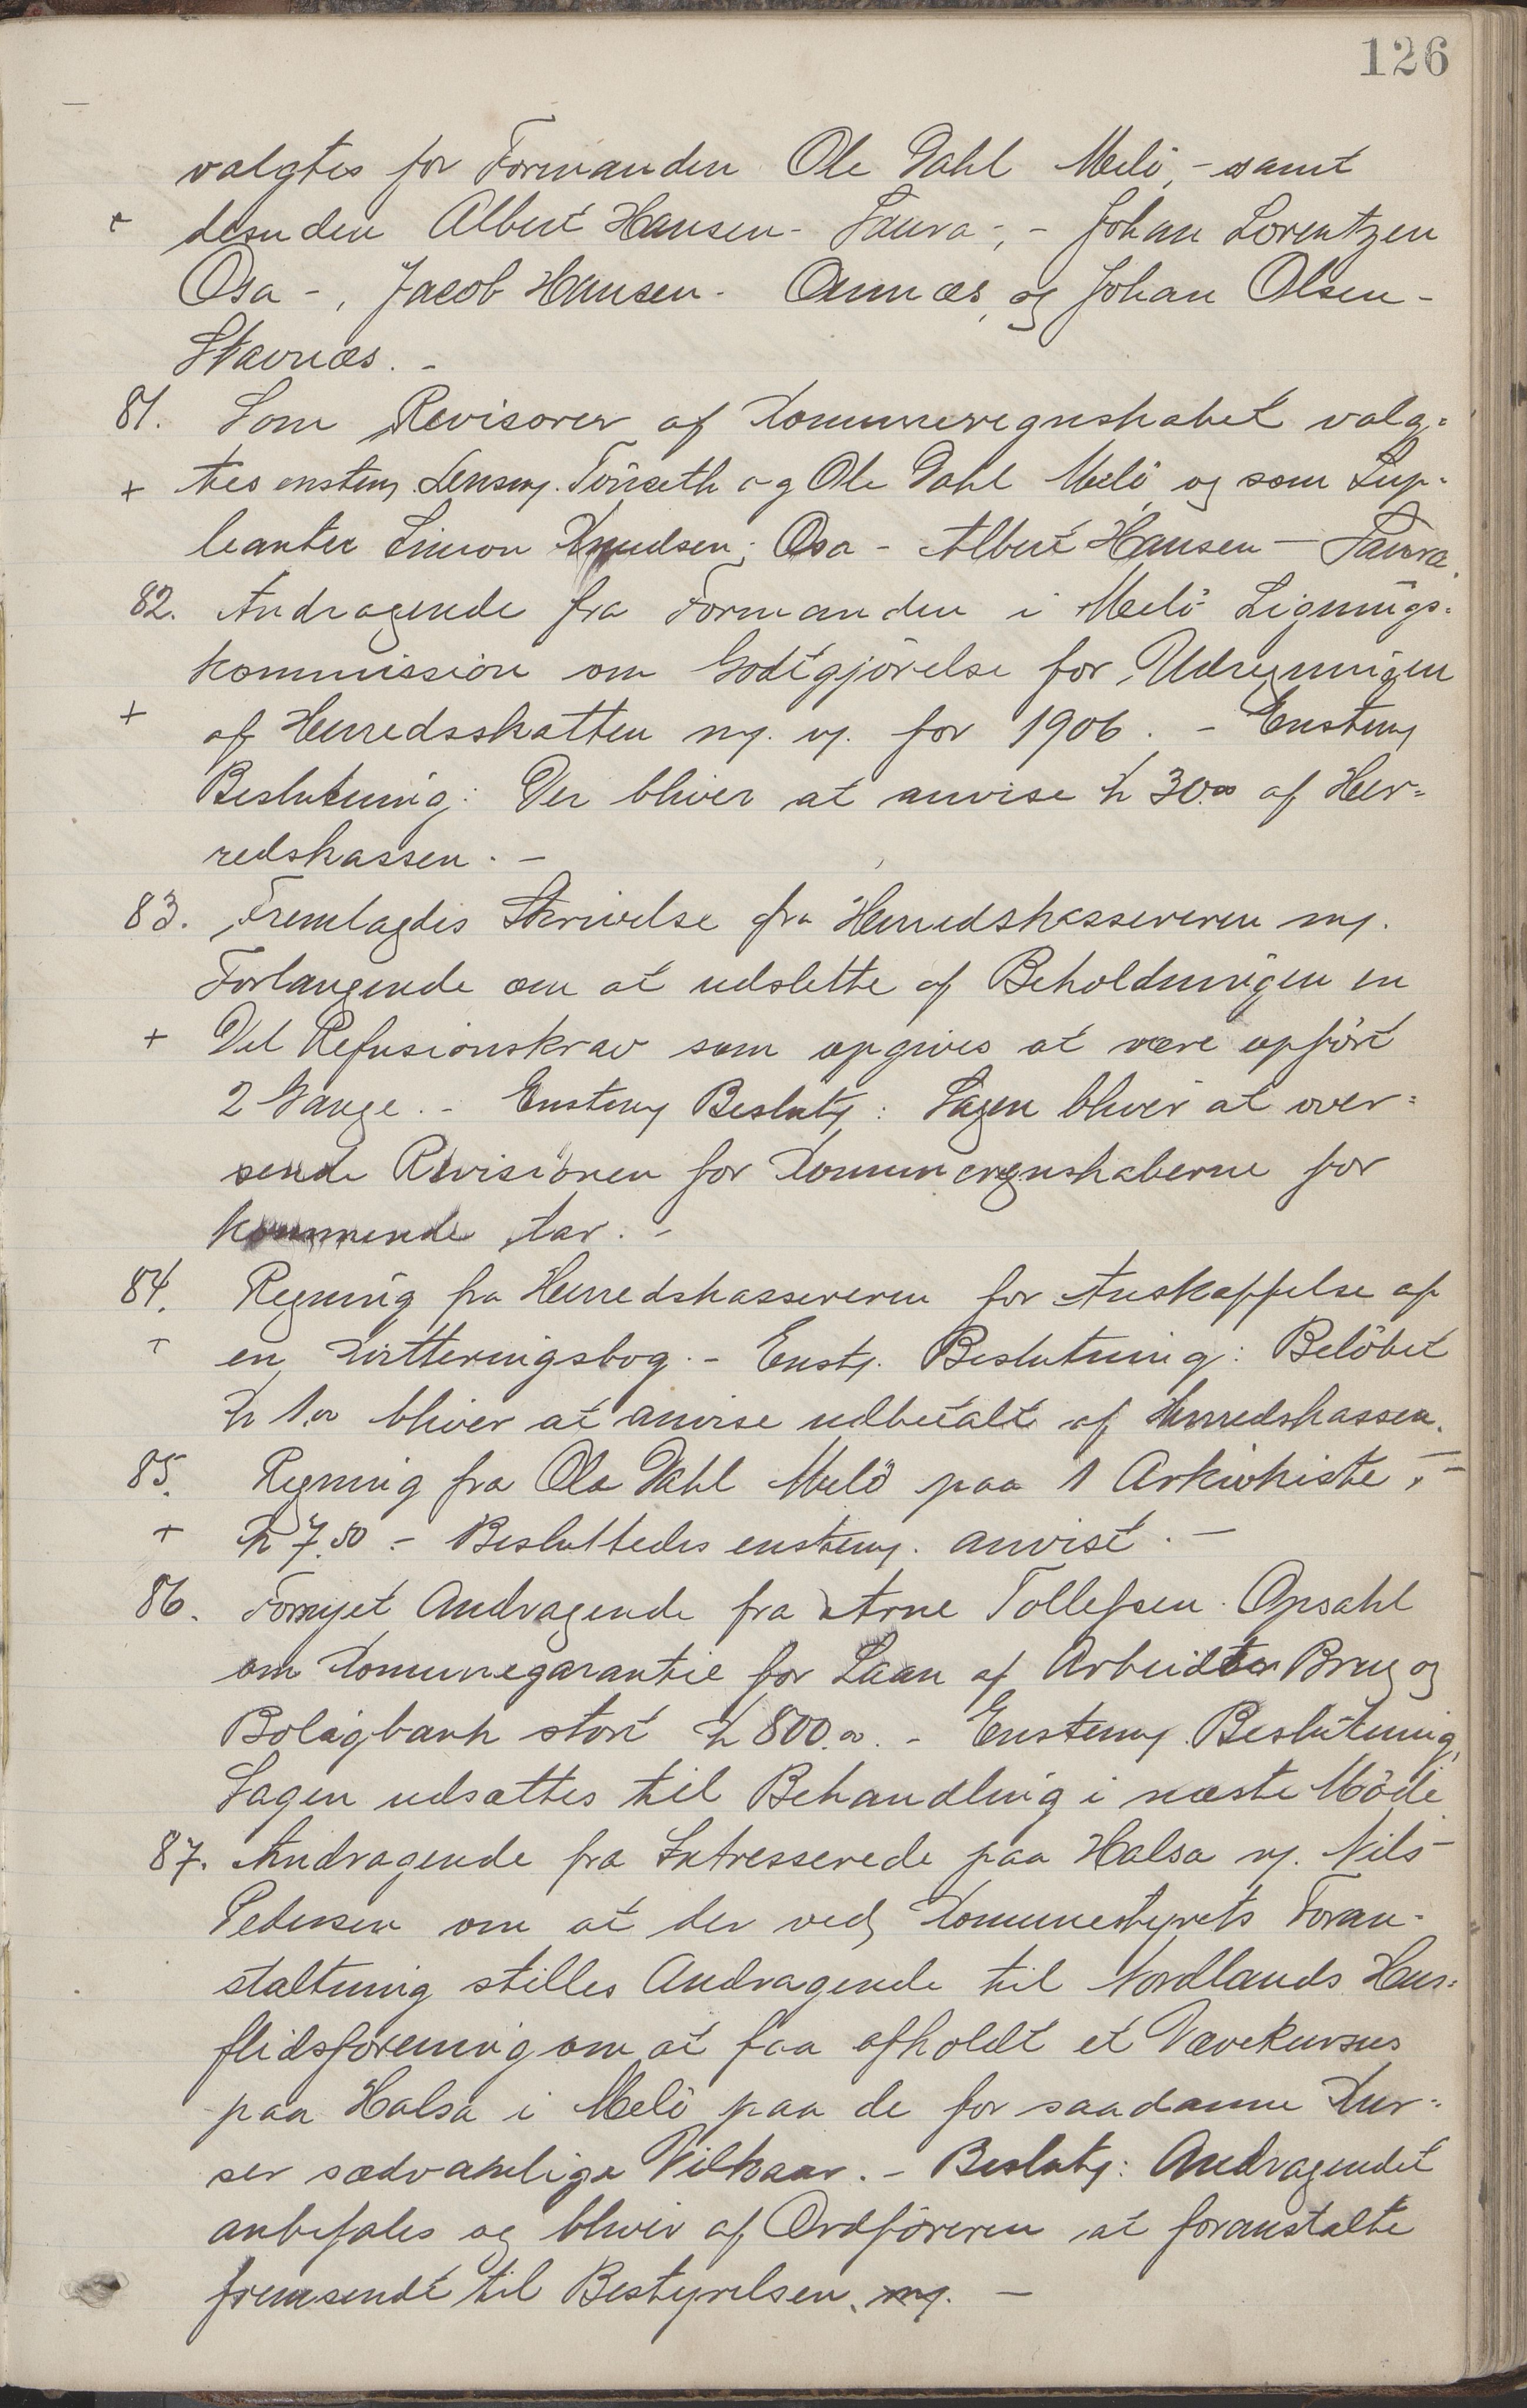 126
valgtes for Formanden Ole Dahl Melö, - samt
+ desuden Albert Hansen - Saura -, - Johan Lorentzen
Osa -, Jacob Hansen - Aamnes, og Johan Olsen -
Stavnæs. -
81. Som Revisorer af Kommuneregnskabet valg=
+ tes enstem. Lensm. Tönseth og Ole Dahl Melö og som Sup=
leanter Simon Knudsen, Osa - Albert Hansen - Saura.
82. Andragende fra Formanden i Melö Lignings=
kommission om Godtgjörelse for Udregningen
+ af Herredsskatten m. v. for 1906. - Enstem
Beslutning: Der bliver at anvise kr 30.00 af Her=
redskassen. -
83. Fremlagdes Skrivelse fra Herredskassereren m.
Forlangende om at udslette af Beholdningen en
+ Del Refusionskrav som opgives at være opfört
2 Gange. - Enstem Beslutn: Sagen bliver at over=
sende Revisionen for Kommuneregnskaberne for
kommende Aar. -
84. Regning fra Herredskassereren for Anskaffelse af
+ en Kvitteringsbog. - Enst. Beslutning: Belöbet
kr 1.00 bliver at anvise udbetalt af Herredskassen.
85. Regning fra Ole Dahl Melö paa 1 Arkivkiste, -
+ kr 7.50 - Besluttedes enstem. anvist. -
86. Fornyet Andragende fra Arne Tollefsen Opsahl
om Kommunegarantie for Laan af Arbeider Brug og
Boligbank stort kr 800.00. - Enstem. Beslutning,
Sagen udsættes til Behandling i næste Möde
87. Andragende fra Intresserede paa Halsa v. Nils
Pedersen om at der ved Kommunestyrets Foran=
staltning stilles Andragende til Nordlands Hus=
flidsforening om at faa afholdt et Vævekursus
paa Halsa i Melö paa de for saadanne Kur=
ser sædvanlige Vilkaar. - Beslutn: Andragendet
anbefales og bliver af Ordföreren at foranstalte
fremsendt til Bestyrelsen. -